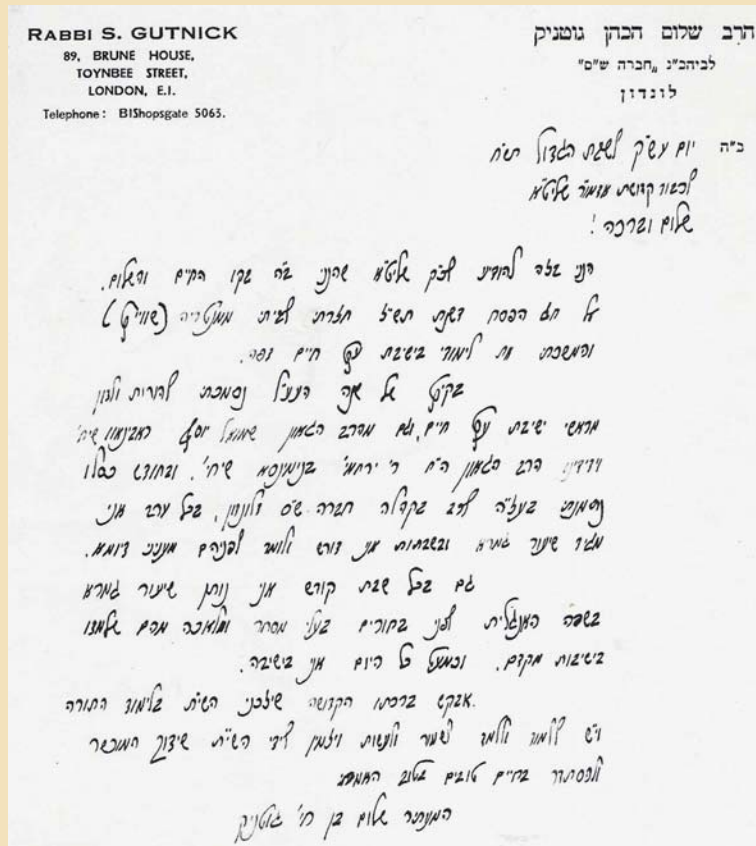 RABBI S. GUTNICK
89, BRUNE HOUSE,
TOYNBEE STREET,
LONDON, E.I.
Telephone: BIShopsgate 5063.
הרב שלום הכהן גוטניק
לביהכ"נ „חברה ש"ס"
לונדון
ב"ה יום עש"ק לשבת הגדול תש"ח
לכבוד קדושת אדמו"ר שליט"א
שלום וברכה!
הנני בזה להודיע לכ"ק שליט"א שהנני ב"ה בקו החיים והשלום.
על חג הפסח דשנת תש"ז חזרתי לביתי (שווייץ)
והמשכתי את לימודי בישיבת עץ חיים דפה.
בקיץ של שנה הנ"ל נסמכתי להורות ולדון
מראשי ישיבת עץ חיים, וגם מהרב הגאון שמואל יוסף ראבינאוו שיח'
וידידינו הרב הגאון ה"ח ר' ירחמי' בנימינסא שיחי'. ובחודש כסלו
נתמנתי בעז"ה לרב בקהלה חברה ש"ס דלונדון, בכל ערב אני
מגיד שיעור גמרא ובשבתות אני דורש ולומד לפניהם מעניני דיומא.
גם בכל שבת קודש אני נותן שיעור גמרא
בשפה האנגלית לפני בחורים בעלי מסחר ומלאכה מהם שלמדו
בישיבות מקדם. וכמעט כל היום אני בישיבה.
אבקש ברכתו הקדושה שיזכני השי"ת בלימוד התורה
וי"ש ללמוד וללמד לשמור ולעשות ויזמין לידי השי"ת שידוך המוכשר
ולהסתדר בחיים טובים בטוב
שלום בן חי' גוטניק